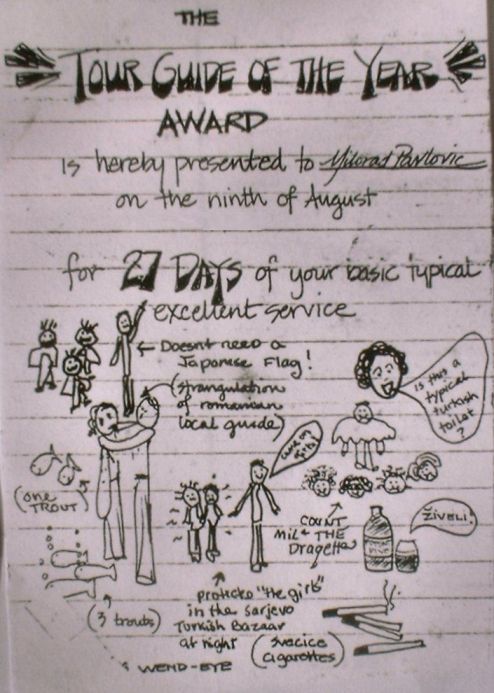 THE
TOUR GUIDE OF THE YEAR
AWARD
is hereby presented to Milorad Pavlovic
on the ninth of August
for 27 DAYS of your basic typical
excellent service
Doesnt need a
Japanese Flag!
(strangulation
of romanian
local guide)
is this a
typical
turkish
toilet
?
(one
TROUT)
come on
girls!
COUNT
MIL & THE
Dragettes
ŽIVELI!
(3 trouts)
protects "the girls"
in the Sarjevo
Turkish Bazaar
at night
(svecice
cigarettes)
WEND-EYE